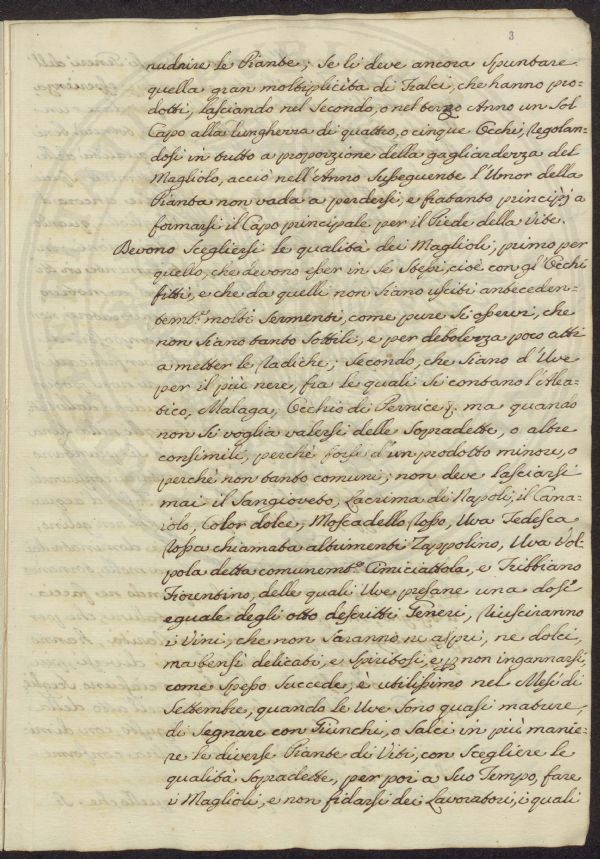 3
nudrire le Piante; Se li deve ancora Spuntare
quella gran moltiplicità di Tralci, che hanno pro-
dotti, lasciando nel Secondo, o nel terzo Anno un Sol
Capo alla lungherza di quattro, o cinque Occhj, regolan-
dosi in tutto a proporzione della gagliarderza del
Magliolo, acciò nell'Anno Susseguente l'Umor della
Pianta non vada a perdersi, e fratanto principj a
formarsi il Capo principale per il Piede della Vite.
Devono Sceglierſi le qualità dei Maglioli; primo per
quello, che devono eſser in Se Steſsi, cioè con gl'Occhi
fitti, e che da quelli non Siano usciti anteceden-
temt.e molti Sermenti, come pure Si oſservi, che
non Siano tanto Sottili, e per debolezza poco atti
a metter le radiche; Secondo, che Siano d'Uve
per il più nere, fra le quali Si contano l'Alea-
tico, Malaga, Occhio di Pernice &. ma quando
non Si voglia valersi delle Sopradette, o altre
consimili, perchè forsi d'un prodotto minore, o
perchè non tanto comuni; non deve lasciarsi
mai il Sangioveto, Lacrima di Napoli, il Cana-
iolo, Color dolce, Moscadello roſso, Uva Tedesca
roſsa chiamata altrimenti Zappolino, Uva Vol-
pola detta comunemt.e Amiciattola, e Tribbiano
Fiorentino, delle quali Uve presane una dose
eguale degli otto descritti Generi, riusciranno
i Vini, che non Saranno nè aspri, ne dolci,
ma bensì delicati, e Spiritosi, e p non ingannarsi,
come Speſso Succede, è utiliſsimo nel Mese di
Settembre, quando le Uve Sono quasi mature,
di Segnare con Giunchi, o Salci in più manie-
re le diverse Piante di Viti, con Scegliere le
qualità Sopradette, per poi a Suo Tempo, fare
i Maglioli, e non fidarsi dei Lavoratori, i quali